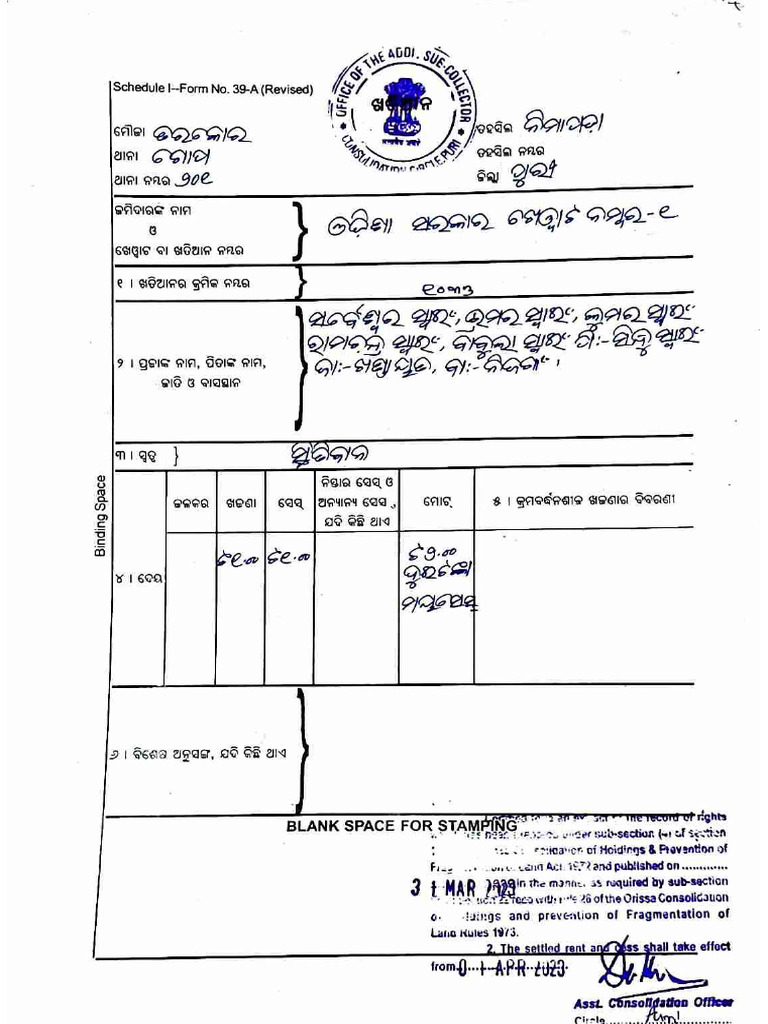 Schedule I--Form No. 39-A (Revised)
OFFICE OF THE ADDL. SUB-COLLECTOR
CONSOLIDATION CIRCLE, PURI
ଖତିୟାନ
ମୌଜା
ଥାନା ଗୋପ
ଥାନା ନମ୍ବର ୨୦୧
ତହସିଲ ନିମାପଡ଼ା
ତହସିଲ ନମ୍ବର
ଜିଲ୍ଲା ପୁରୀ
ଜମିଦାରଙ୍କ ନାମ
ଓ
ଖେୱାଟ ବା ଖତିଆନ ନମ୍ବର
ଓଡ଼ିଶା ସରକାର ଖେୱାଟ ନମ୍ବର-୧
୧ । ଖତିଆନର କ୍ରମିକ ନମ୍ବର
୨ । ପ୍ରଜାଙ୍କ ନାମ, ପିତାଙ୍କ ନାମ,
ଜାତି ଓ ବାସସ୍ଥାନ
ସର୍ବେଶ୍ୱର ସ୍ୱାଇଁ, ଭ୍ରମର ସ୍ୱାଇଁ, କୁମର ସ୍ୱାଇଁ
ରାମଚନ୍ଦ୍ର ସ୍ୱାଇଁ, ବାବୁଲା ସ୍ୱାଇଁ ପି:-ସିନ୍ଧୁ ସ୍ୱାଇଁ
ଜା:-ଖଣ୍ଡାୟତ, ବା:-ନିଜଗାଁ ।
୩ । ସ୍ୱତ୍ୱ
ସ୍ଥିତିବାନ
ଜଳକର
ଖଜଣା
ସେସ୍
ନିସ୍ତାର ସେସ୍ ଓ
ଅନ୍ୟାନ୍ୟ ସେସ୍,
ଯଦି କିଛି ଥାଏ
ମୋଟ୍
୫ । କ୍ରମବର୍ଦ୍ଧନଶୀଳ ଖଜଣାର ବିବରଣୀ
୪ । ଦେୟ
ଟ୧.୦୦
ଟ୧.୦୦
ଟ୨.୦୦
ଦୁଇଟଙ୍କା
ମାୟସେସ୍
୬ । ବିଶେଷ ଅନୁସଙ୍ଗ, ଯଦି କିଛି ଥାଏ
Binding Space
BLANK SPACE FOR STAMPING
the record of rights
under sub-section (4) of section
of Holdings & Prevention of
Land Act, 1972 and published on ............
31 MAR 2023 in the manner as required by sub-section
26 of the Orissa Consolidation
and prevention of Fragmentation of
Land Rules 1973.
2. The settled rent and cess shall take effect
from 01 APR 2023
Asst. Consolidation Officer
Circle